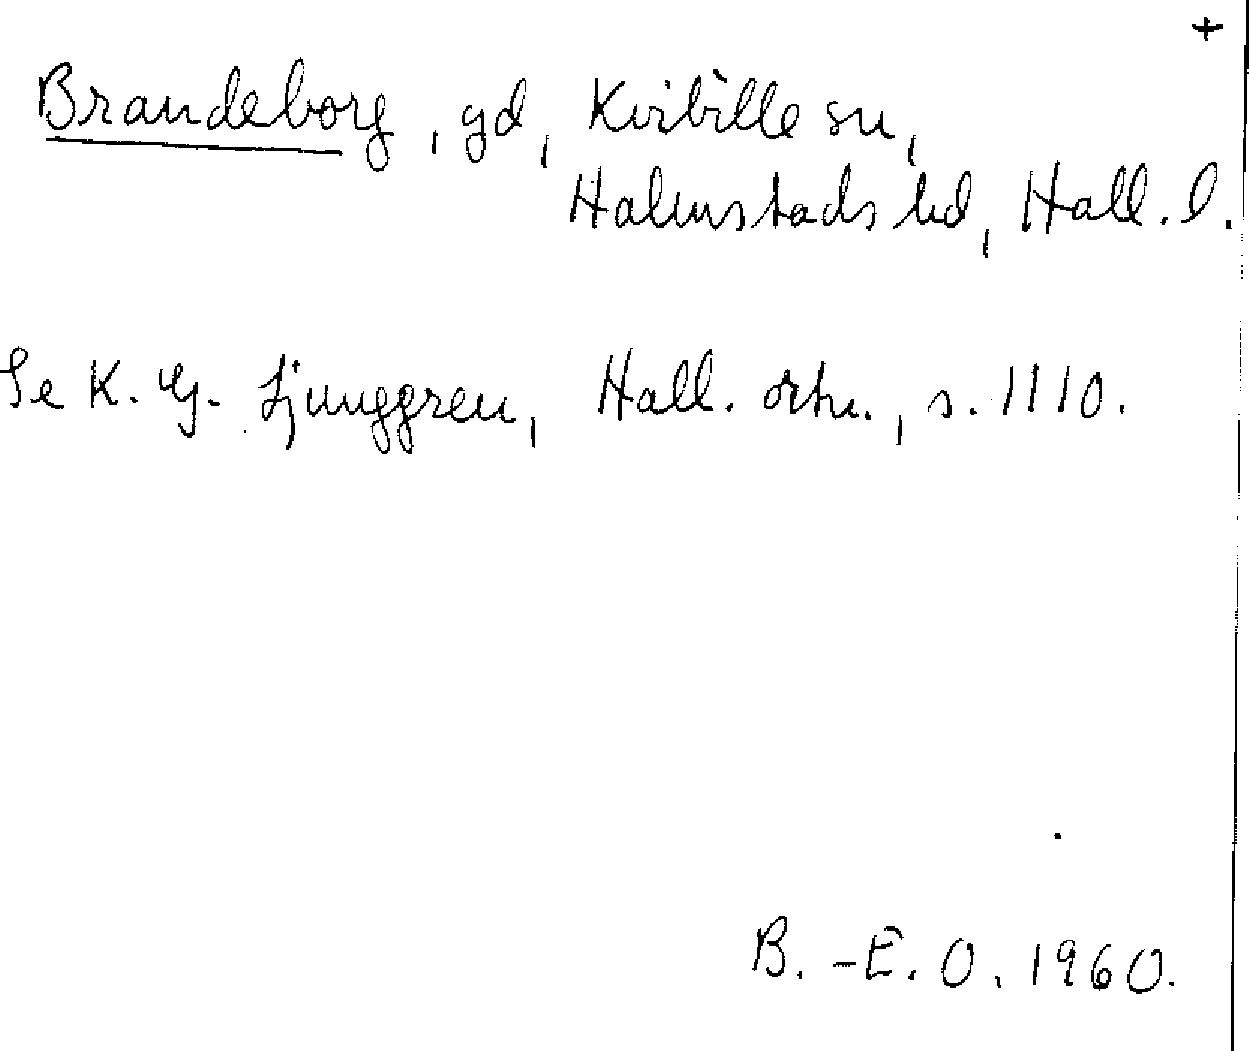 +
Brandeborg, gd, Kvibille sn,
Halmstads hd, Hall. l.
Se K. G. Ljunggren, Hall. ortn., s. 1110.
B.-E. O. 1960.